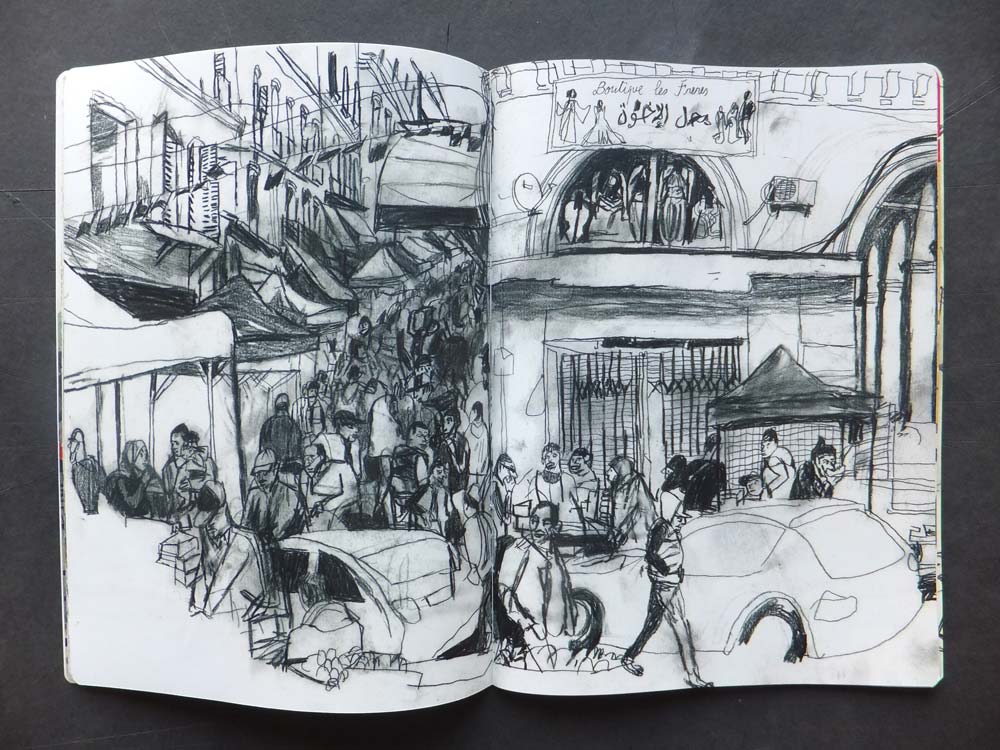 Boutique les Freres
محل الإخوة